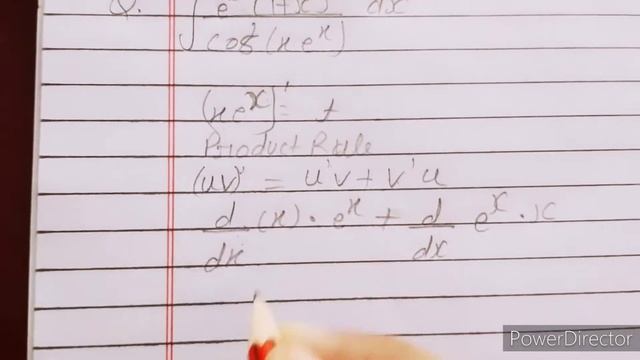 Q. ∫ eˣ(1+x) dx
cos²(x eˣ)
(x eˣ)' = t
Product Rule
(uv)' = u'v + v'u
d/dx (x) · eˣ + d/dx eˣ · x
PowerDirector